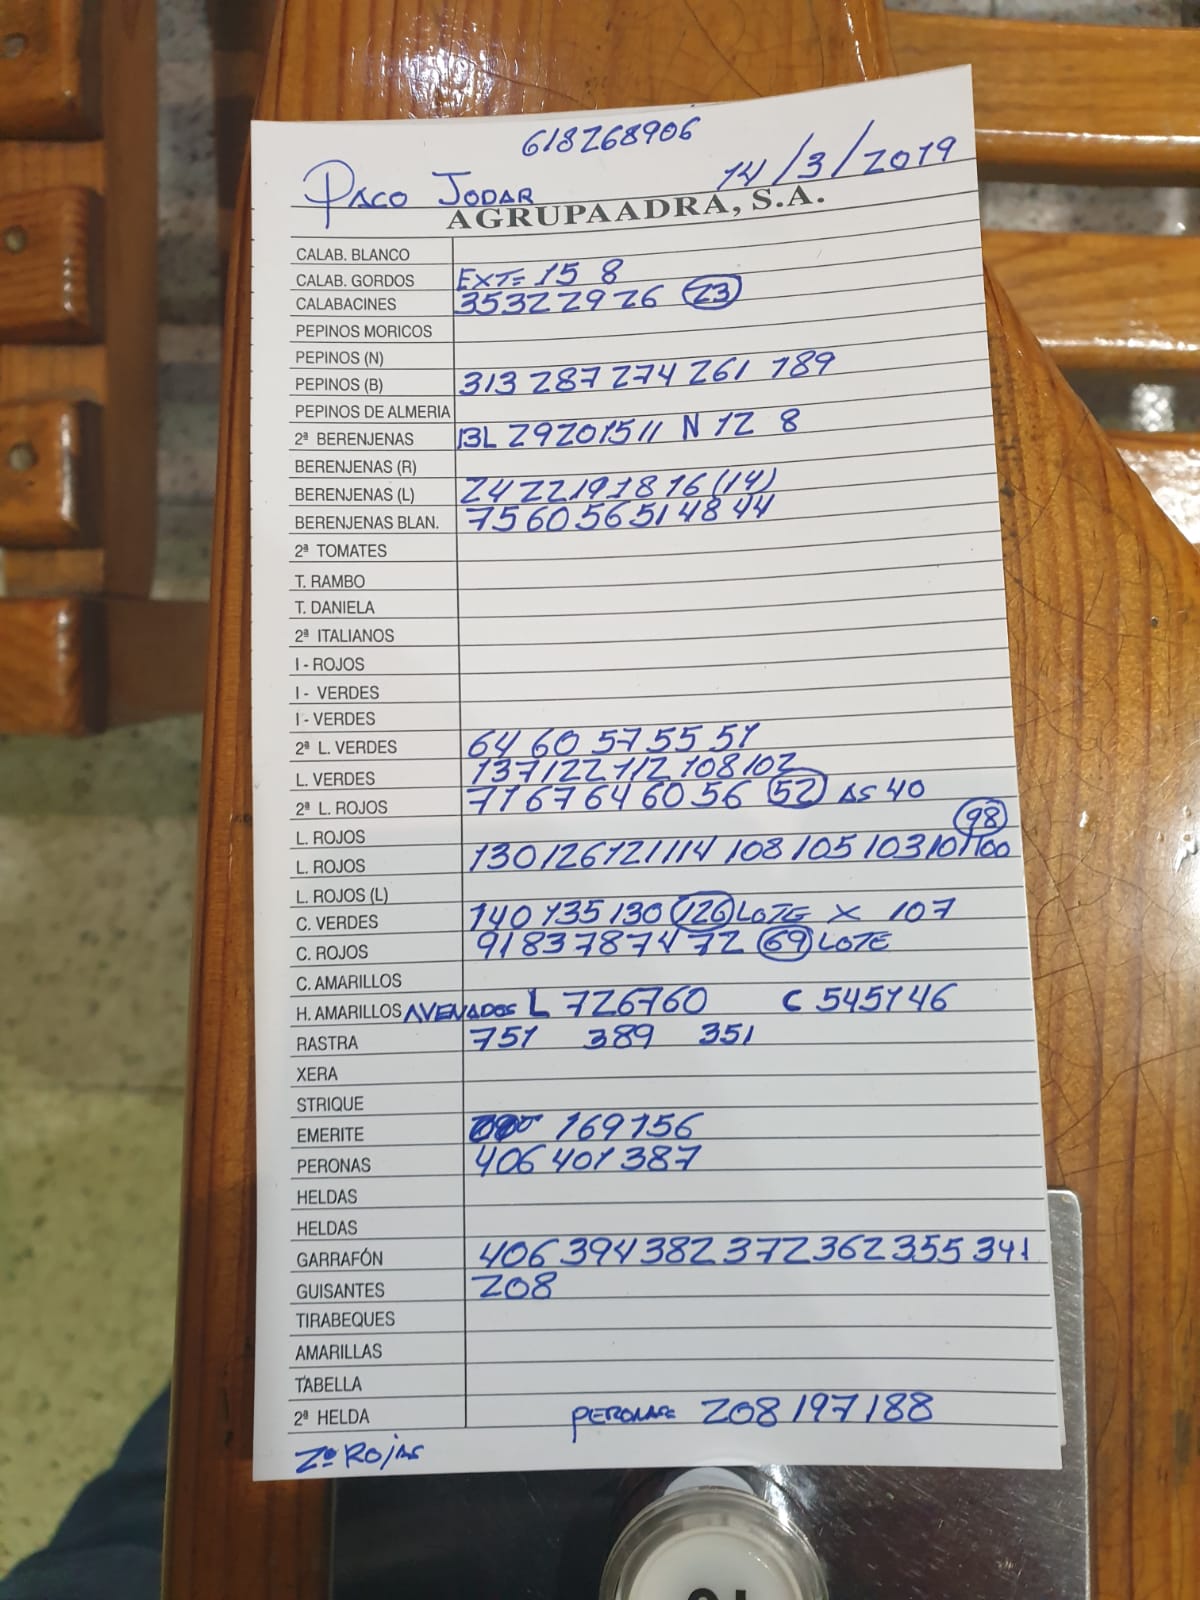 618268906
PACO JODAR 14/3/2019
AGRUPAADRA, S.A.
CALAB. BLANCO
CALAB. GORDOS EXT= 15 8
CALABACINES 35 32 29 26 23
PEPINOS MORICOS
PEPINOS (N)
PEPINOS (B) 313 287 274 261 189
PEPINOS DE ALMERIA
2ª BERENJENAS BL 29 20 15 11 N 12 8
BERENJENAS (R)
BERENJENAS (L) 24 22 19 18 16 (14)
BERENJENAS BLAN. 75 60 56 51 48 44
2ª TOMATES
T. RAMBO
T. DANIELA
2ª ITALIANOS
I - ROJOS
I - VERDES
I - VERDES
2ª L. VERDES 64 60 57 55 51
L. VERDES 137 122 112 108 102
2ª L. ROJOS 71 67 64 60 56 52 AS 40
L. ROJOS 98
L. ROJOS 130 126 121 114 108 105 103 101 100
L. ROJOS (L)
C. VERDES 140 135 130 126 LOTE X 107
C. ROJOS 91 83 78 74 72 69 LOTE
C. AMARILLOS
H. AMARILLOS AVENADOS L 72 67 60 C 54 51 46
RASTRA 751 389 351
XERA
STRIQUE
EMERITE 169 156
PERONAS 406 401 387
HELDAS
HELDAS
GARRAFÓN 406 394 382 372 362 355 341
GUISANTES 208
TIRABEQUES
AMARILLAS
TABELLA
2ª HELDA PERONAS 208 197 188
2º ROJAS